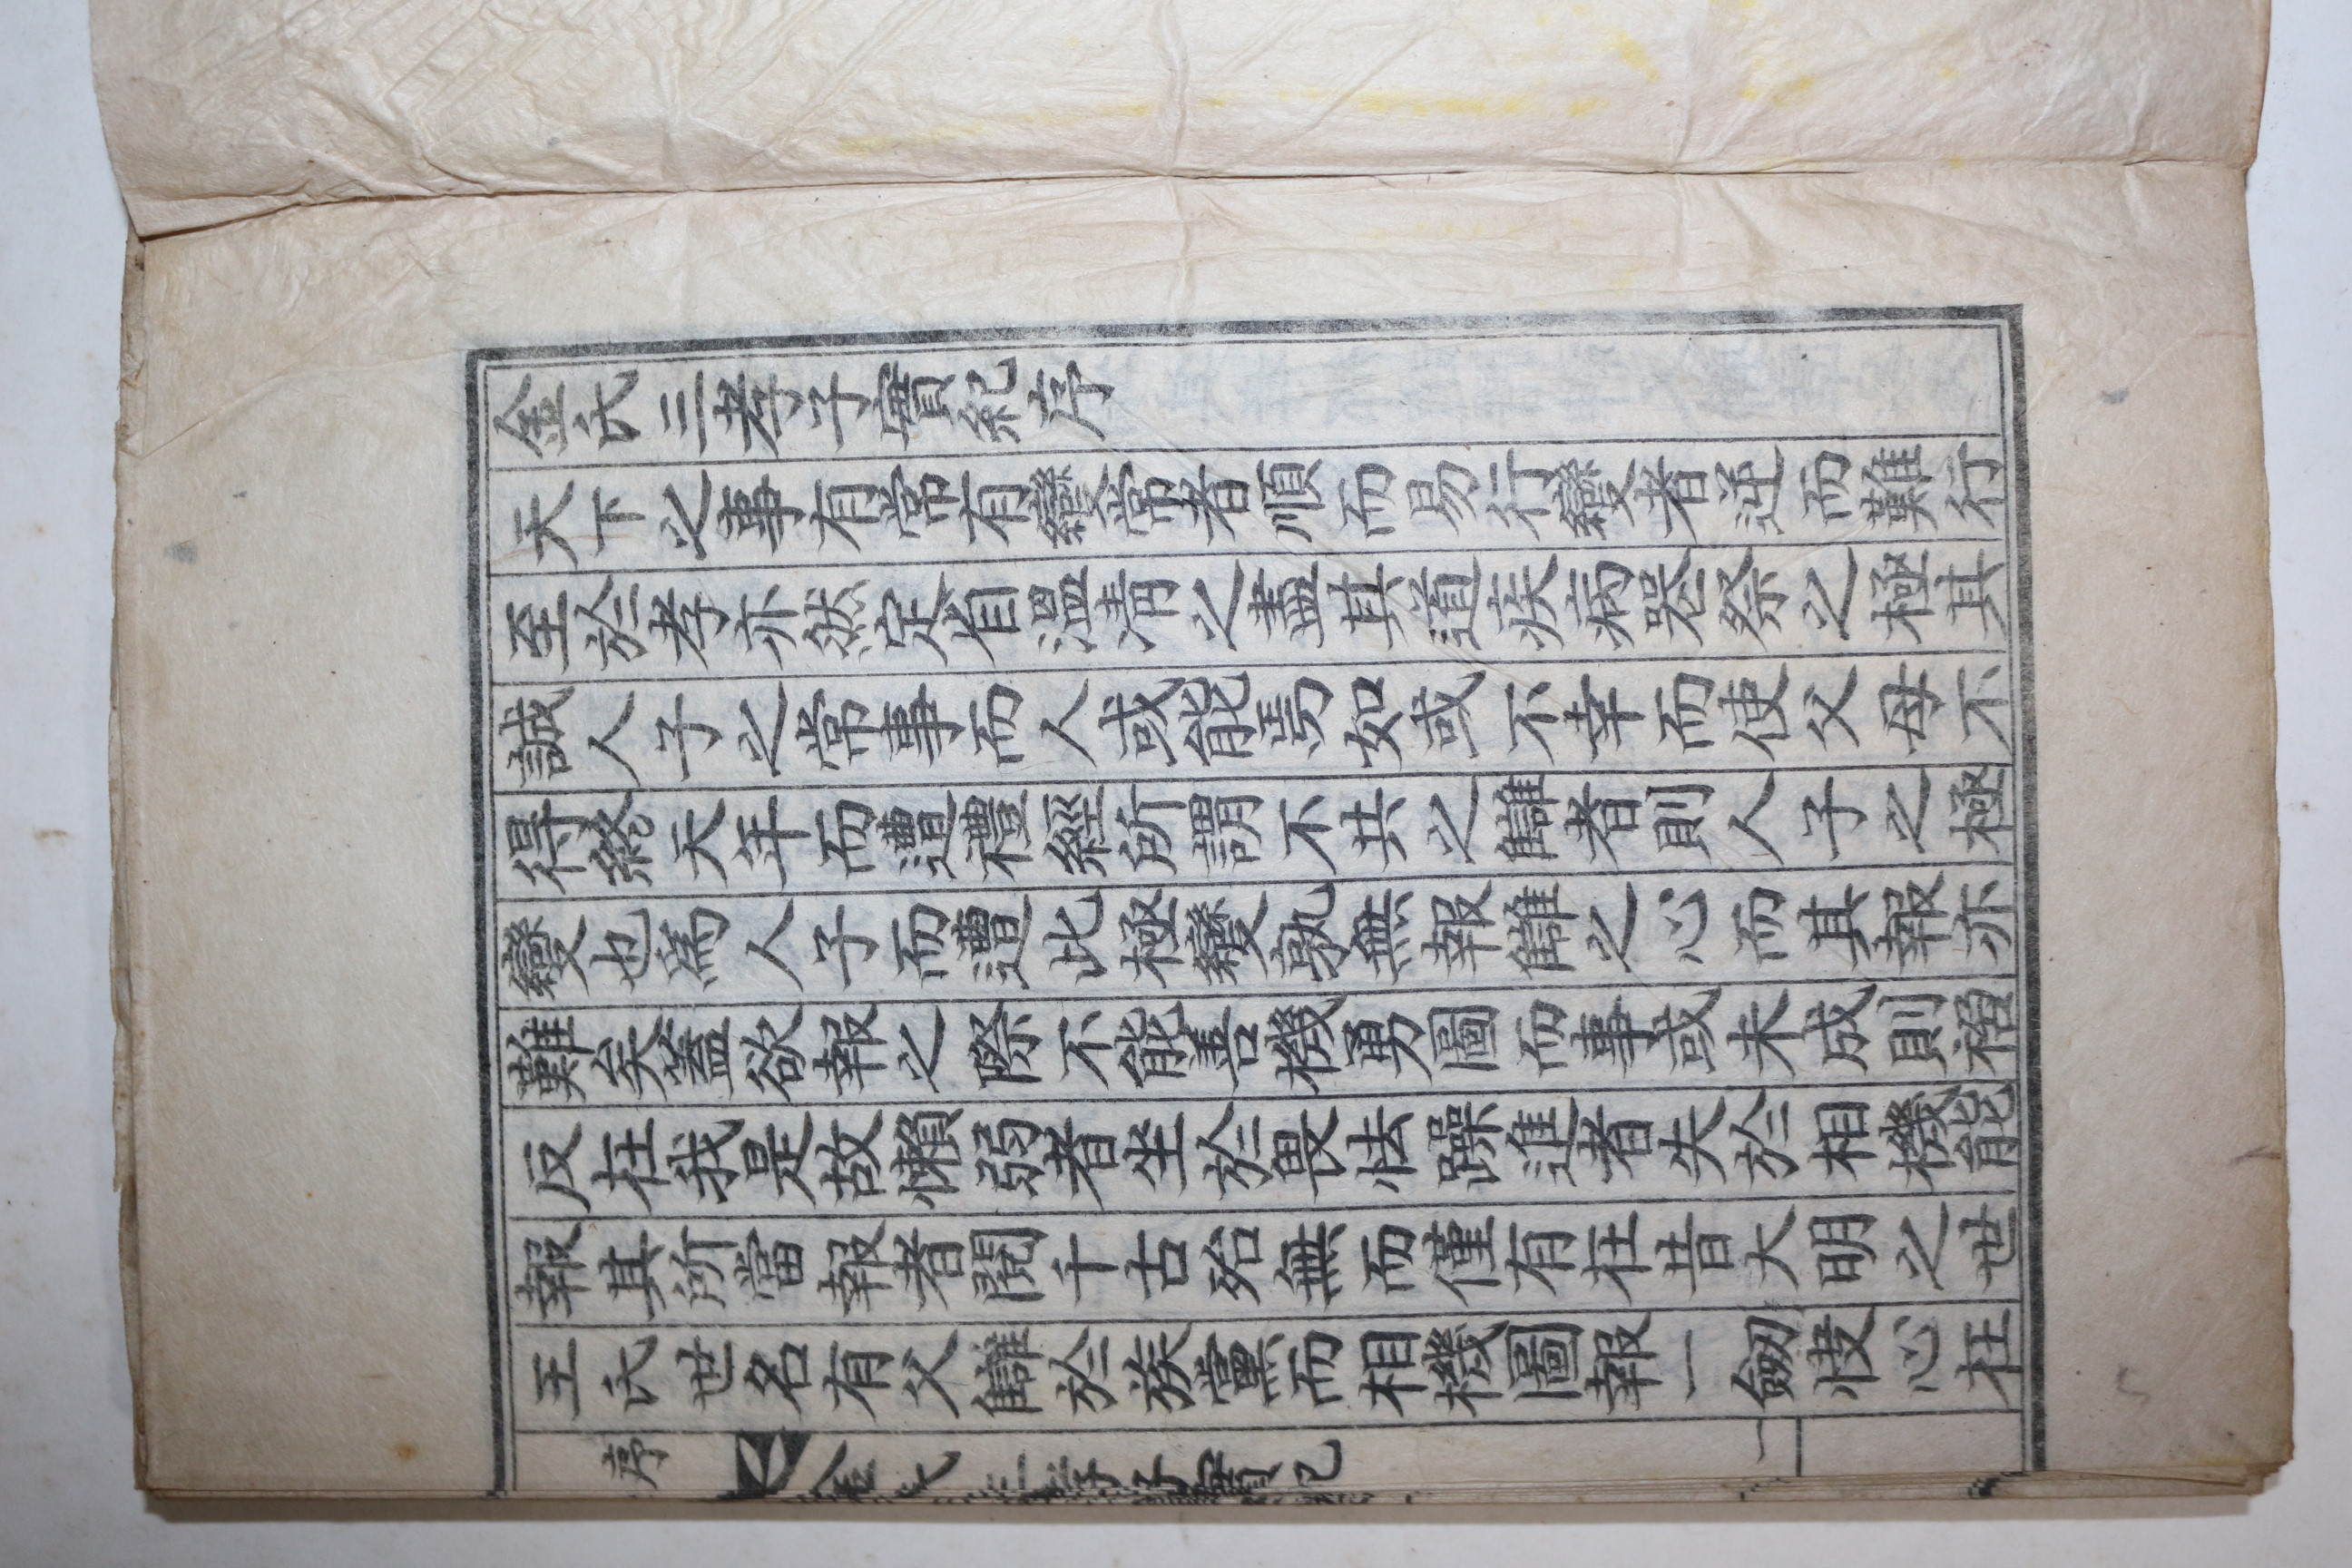 金氏三孝子實紀序
天下之事有常有變常者順而易行變者逆而難行
至於孝亦然定省溫凊之盡其道疾病喪祭之極其
誠人子之常事而人或能焉如或不幸而使父母不
得終天年而遭禮經所謂不共之讎者則人子之極
變也爲人子而遭此極變孰無報讎之心而其報亦
難矣蓋欲報之際不能善機勇圖而事或未成則禍
反在我是故懶弱者坐於畏怯躁進者失於相機能
報其所當報者閱千古殆無而僅有在昔大明之世
王氏世名有父讎於族黨而相機圖報一劒快心在
序 金氏三孝子實紀 一